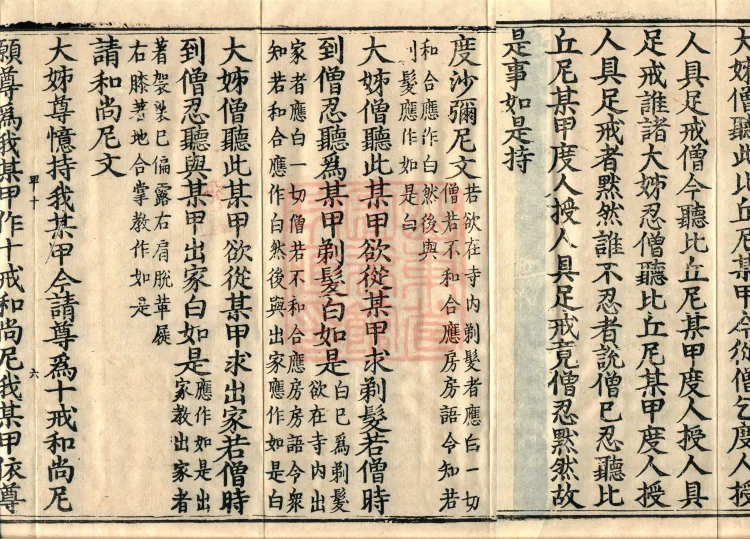 大姊僧聽此比丘尼某甲今從僧乞度人授
人具足戒僧今聽比丘尼某甲度人授人具
足戒誰諸大姊忍僧聽比丘尼某甲度人授
人具足戒者黙然誰不忍者說僧已忍聽比
丘尼某甲度人授人具足戒竟僧忍黙然故
是事如是持
度沙彌尼文
若欲在寺内剃髮者應白一切
僧若不和合應房房語令知若
和合應作白然後與
剃髮應作如是白
大姊僧聽此某甲欲從某甲求剃髮若僧時
到僧忍聽爲某甲剃髮白如是
白已爲剃髮
欲在寺内出
家者應白一切僧若不和合應房房語令衆
知若和合應作白然後與出家應作如是白
大姊僧聽此某甲欲從某甲求出家若僧時
到僧忍聽與某甲出家白如是
應作如是出
家教出家者
著袈裟已偏露右肩脫革屣
右膝著地合掌教作如是
請和尚尼文
大姊尊憶持我某甲今請尊爲十戒和尚尼
甲十
六
願尊爲我某甲作十戒和尚尼我某甲依尊